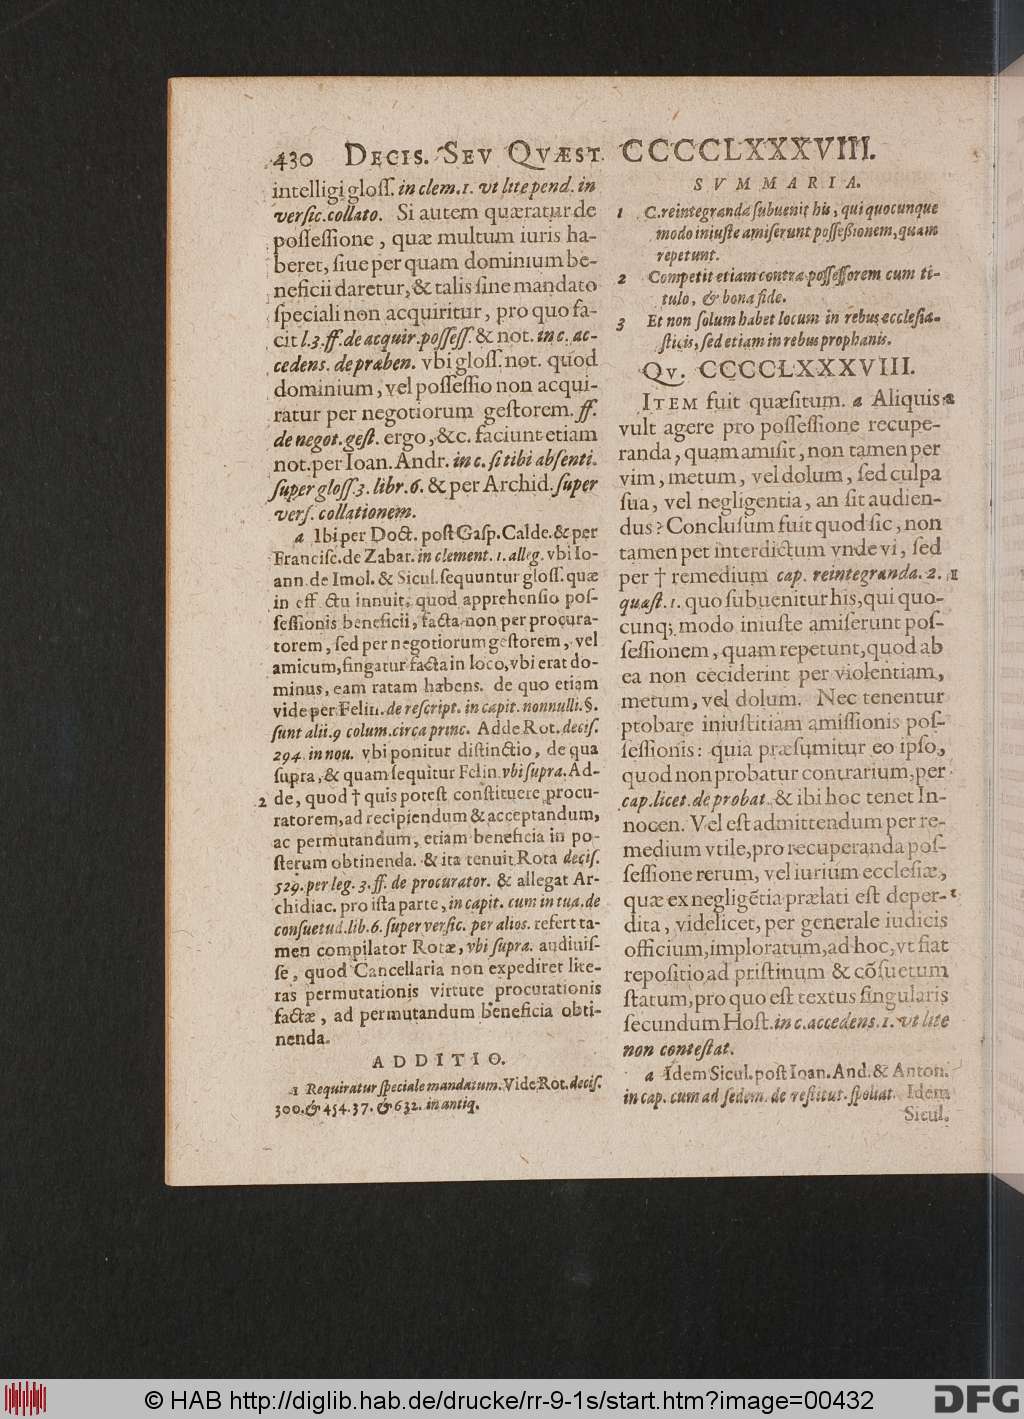 430 DECIS. SEV QVÆST. CCCCCLXXXVIII.
intelligi gloss. in clem. 1. vt lite pend. in
versic. collato. Si autem quæratur de
possessione, quæ multum iuris ha-
beret, siue per quam dominium be-
neficii daretur, & talis sine mandato
speciali non acquiritur, pro quo fa-
cit l. 3. ff. de acquir. possess. & not. in c. ac-
cedens. de præben. vbi gloss. not. quod
dominium, vel possessio non acqui-
ratur per negotiorum gestorem. ff.
de negot. gest. ergo, &c. faciunt etiam
not. per Ioan. Andr. in c. si tibi absenti.
super gloss. 3. libr. 6. & per Archid. super
vers. collationem.
a Ibi per Doct. post Gasp. Calde. & per
Francisc. de Zabar. in clement. 1. alleg. vbi Io-
ann. de Imol. & Sicul. sequuntur gloss. quæ
in eff ctu innuit, quod apprehensio pos-
sessionis beneficii, facta non per procura-
torem, sed per negotiorum gestorem, vel
amicum, fingatur facta in loco, vbi erat do-
minus, eam ratam habens. de quo etiam
vide per Felin. de rescript. in capit. nonnulli. §.
sunt alii. 9 colum. circa princ. Adde Rot. decis.
294. in nou. vbi ponitur distinctio, de qua
supra, & quam sequitur Felin. vbi supra. Ad-
2 de, quod † quis potest constituere procu-
ratorem, ad recipiendum & acceptandum,
ac permutandum, etiam beneficia in po-
sterum obtinenda. & ita tenuit Rota decis.
529. per leg. 3. ff. de procurator. & allegat Ar-
chidiac. pro ista parte, in capit. cum in tua. de
consuetud. lib. 6. super versic. per alios. refert ta-
men compilator Rotæ, vbi supra. audiuis-
se, quod Cancellaria non expediret lite-
ras permutationis virtute procurationis
factæ, ad permutandum beneficia obti-
nenda.
ADDITIO.
1 Requiratur speciale mandatum. Vide Rot. decis.
300. & 454. 37. & 632. in antiq.
SVMMARIA.
1 C. reintegranda subuenit his, qui quocunque
modo iniuste amiserunt possessionem, quam
repetunt.
2 Competit etiam contra possessorem cum ti-
tulo, & bona fide.
3 Et non solum habet locum in rebus ecclesia-
sticis, sed etiam in rebus prophanis.
QV. CCCCCLXXXVIII.
ITEM fuit quæsitum. a Aliquis a
vult agere pro possessione recupe-
randa, quam amisit, non tamen per
vim, metum, vel dolum, sed culpa
sua, vel negligentia, an sit audien-
dus? Conclusum fuit quod sic, non
tamen pet interdictum vnde vi, sed
per † remedium cap. reintegranda. 2. 1
quæst. 1. quo subuenitur his, qui quo-
cunq; modo iniuste amiserunt pos-
sessionem, quam repetunt, quod ab
ea non ceciderint per violentiam,
metum, vel dolum. Nec tenentur
probare iniustitiam amissionis pos-
sessionis: quia præsumitur eo ipso,
quod non probatur contrarium, per
cap. licet. de probat. & ibi hoc tenet In-
nocen. Vel est admittendum per re-
medium vtile, pro recuperanda pos-
sessione rerum, vel iurium ecclesiæ,
quæ ex negligẽtia prælati est deper-
dita, videlicet, per generale iudicis
officium, imploratum, ad hoc, vt fiat
repositio ad pristinum & cõsuetum
statum, pro quo est textus singularis
secundum Host. in c. accedens. 1. vt lite
non contestat.
a Idem Sicul. post Ioan. And. & Anton.
in cap. cum ad sedem. de restitut. spoliat. Idem
Sicul.
© HAB http://diglib.hab.de/drucke/rr-9-1s/start.htm?image=00432
DFG